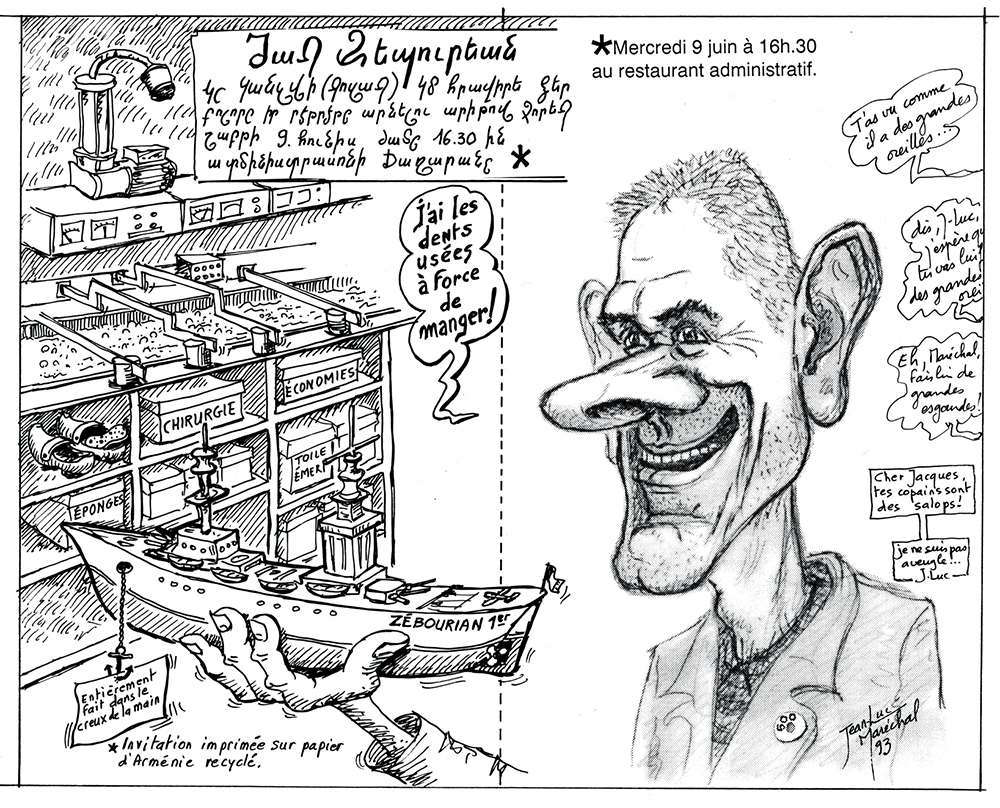 Ժագ Զեպուրեան
կը կանչվի (Ժագ) կը հրաւիրէ ձեր
շաբթի 9. հունիս ժամը 16.30 ին
*
*Mercredi 9 juin à 16h.30
au restaurant administratif.
j'ai les
dents
usées
à force
de
manger!
T'as vu comme
il a des grandes
oreilles...
dis, J-Luc,
j'espère qu
tu vas lui
des grandes
orei
Eh, Maréchal,
fais lui de
grandes
esgourdes!
Cher Jacques,
tes copains sont
des salops!
je ne suis pas
aveugle...
J. Luc
CHIRURGIE
ÉCONOMIES
TOILE
ÉMERI
ÉPONGES
ZÉBOURIAN 1er
Entièrement
fait dans le
creux de la main
*Invitation imprimée sur papier
d'Arménie recyclé.
500
Jean-Luc
Maréchal
93